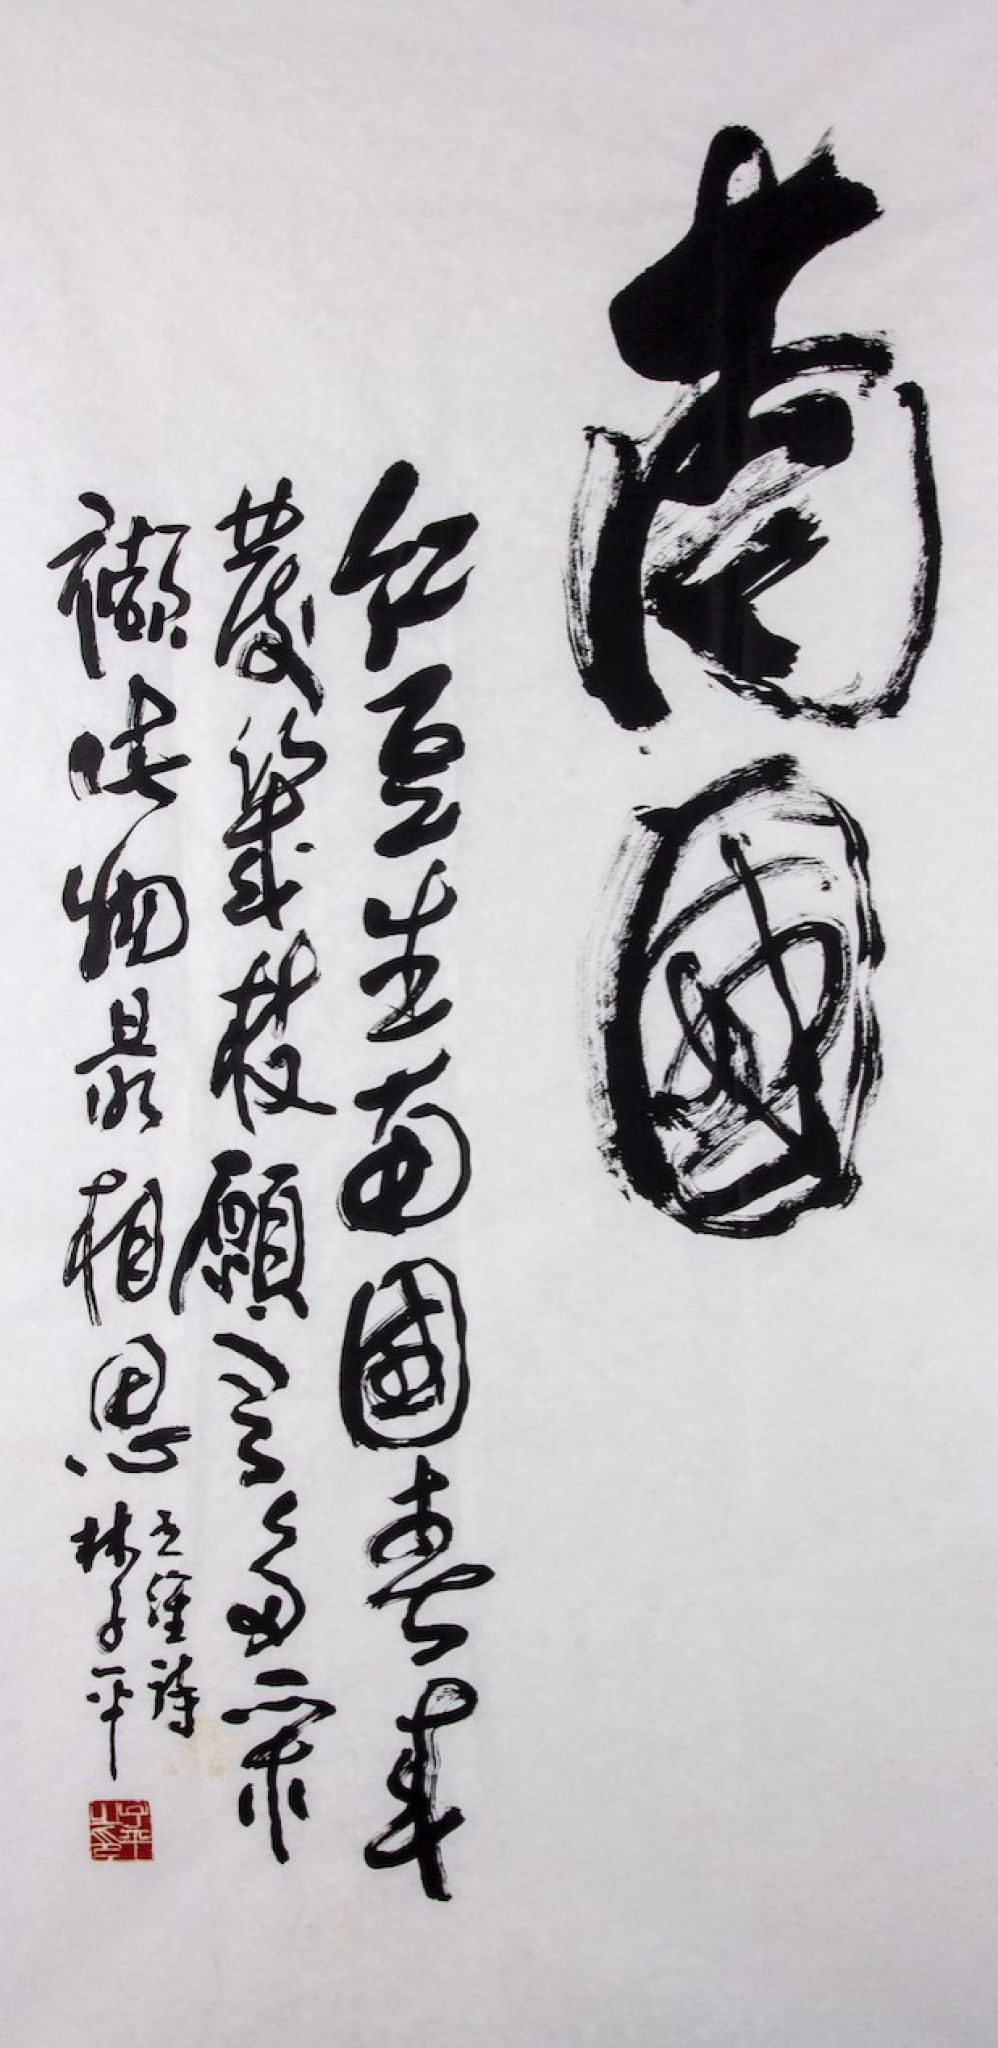 南國
紅豆生南國春來
發幾枝願君多采
襭此物最相思
王維詩
林子平
子平之印